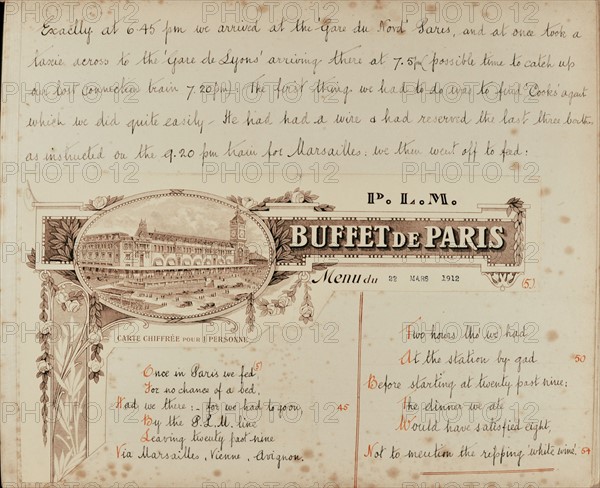 Exactly at 6.45 pm we arrived at the 'Gare du Nord' Paris, and at once took a
taxie across to the 'Gare de Lyons' arriving there at 7.5pm possible time to catch up
our lost connection train 7.20pm). The first thing we had to do was to find 'Cooks' agent
which we did quite easily - He had had a wire & had reserved the last three berths,
as instructed on the 9.20 pm train for Marsailles, we then went off to feed:
P. L. M.
BUFFET DE PARIS
Menu du 22 MARS 1912
(5)
CARTE CHIFFRÉE POUR 1 PERSONNE
Once in Paris we fed 51
For no chance of a bed,
Had we there: - for we had to goon, 45
By the P.L.M. line
Leaving twenty past nine
Via Marsailles, Vienne, Avignon.
Two hours tho' we had
At the station by gad 50
Before starting at twenty past nine:
The dinner we ate
Would have satisfied eight,
Not to mention the ripping 'white wine'. 54
PHOTO12